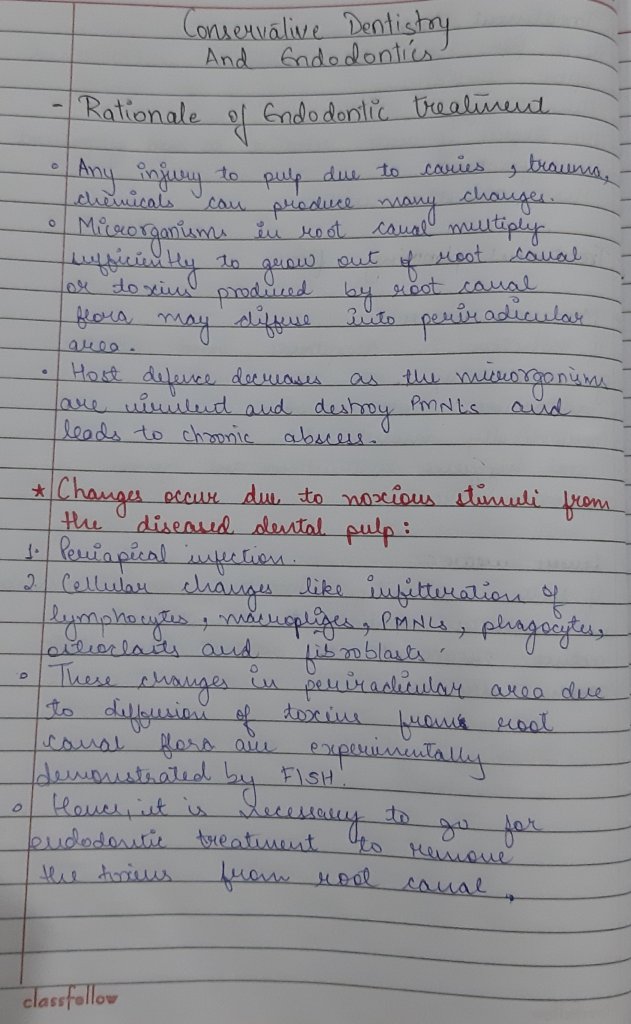 Conservative Dentistry
And Endodontics
- Rationale of Endodontic treatment
◦ Any injury to pulp due to caries, trauma,
chemicals can produce many changes.
◦ Microrganisms in root canal multiply
sufficiently to grow out of root canal
or toxins produced by root canal
flora may diffuse into periradicular
area.
• Host defence decreases as the microrgonisms
are virulent and destroy PMNLs and
leads to chronic abscess.
* Changes occur due to noxious stimuli from
the diseased dental pulp:
1. Periapical infection.
2. Cellular changes like infilteration of
lymphocytes, macrophges, PMNLs, phagocytes,
osteoclasts and fibroblasts.
◦ These changes in periradicular area due
to diffusion of toxins from root
canal flora are experimentally
demonstrated by FISH.
◦ Hence, it is necessary to go for
endodontic treatment to remove
the toxins from root canal.
classfollow